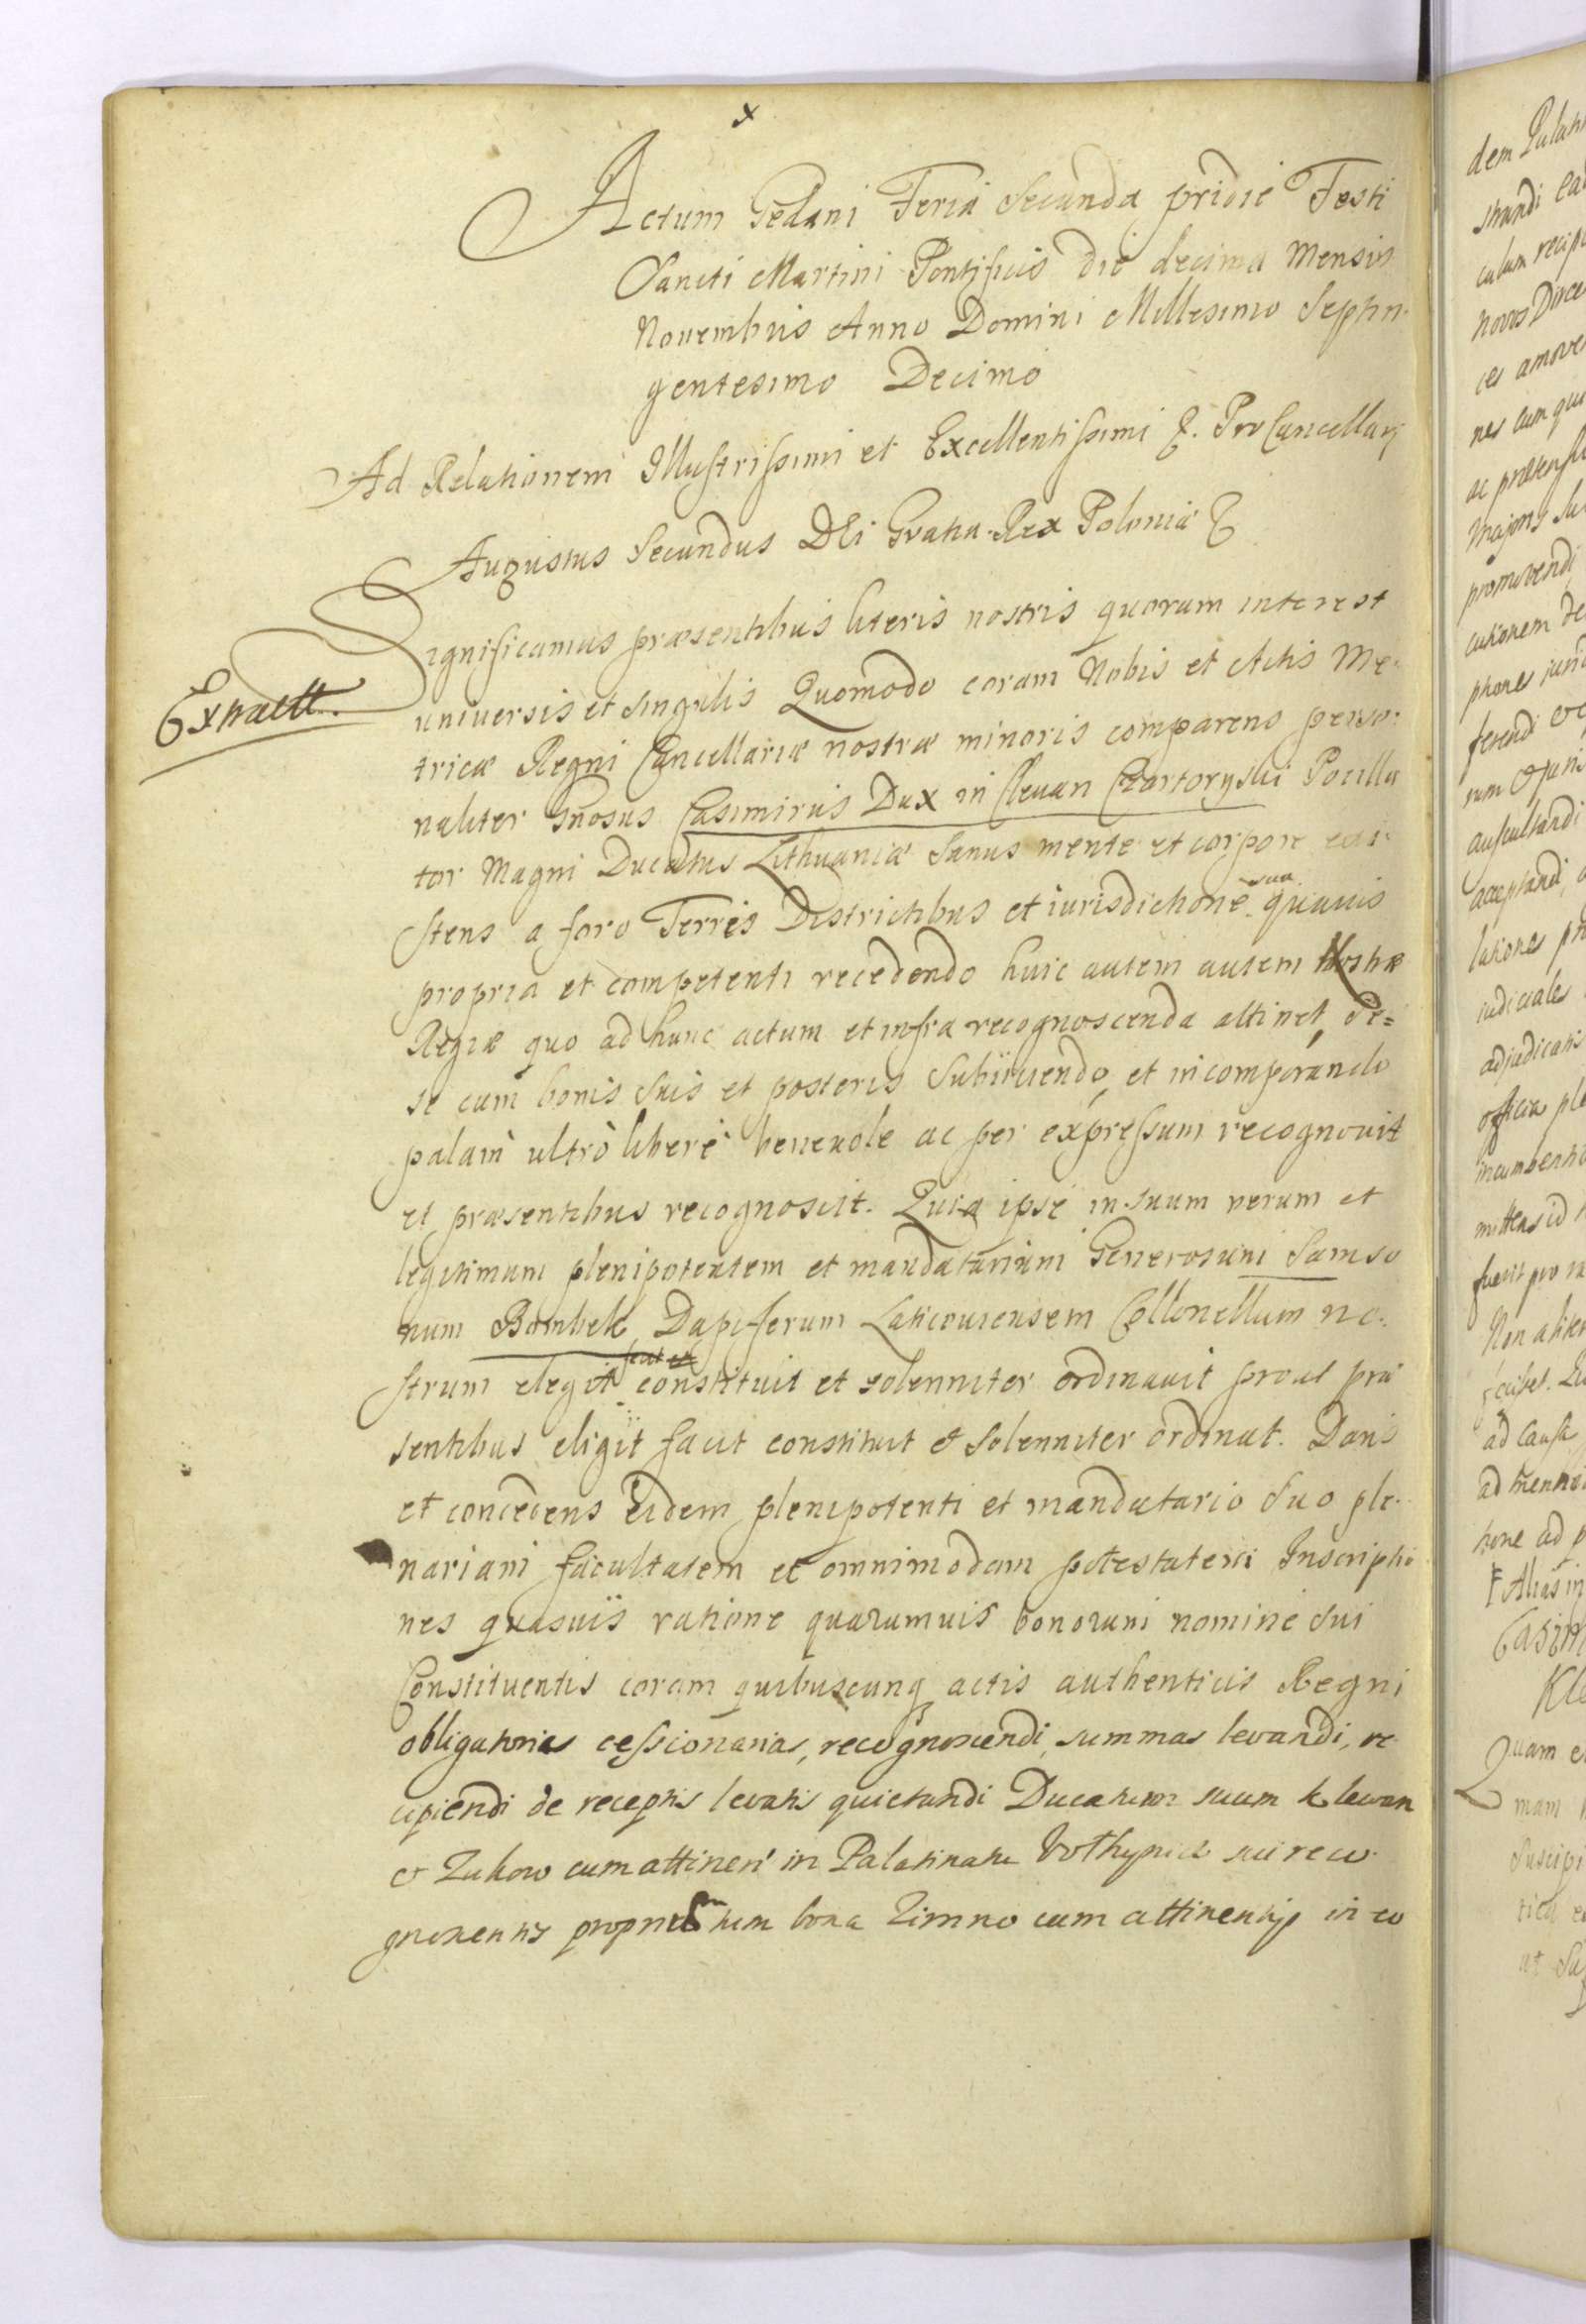 x
Actum Gedani Feria Secunda pridie Festi
Sancti Martini Pontificis die decima Mensis
Novembris Anno Domini Millesimo Septin-
gentesimo Decimo
Ad Relationem Illustrissimi et Excellentissimi &. ProCancellarij
Augustus Secundus DEi Gratia Rex Poloniæ &
Extractt.
Significamus præsentibus literis nostris quorum interest
universis et singulis Quomodo coram Nobis et Actis Me-
tricæ Regni Cancellariæ nostræ minoris comparens perso-
naliter Gnosus Casimirus Dux in Clevan Czartoryski Pocilla
tor Magni Ducatus Lithuaniæ Sanus mente et corpore exi-
stens a foro Terris Districtibus et iurisdictione sua quavis
propria et competenti recedendo huic autem autem Nostræ
Regiæ quo ad hunc actum et infra recognoscenda attinet, se=
se cum bonis suis et posteris Subijciendo, et incomporando
palam ultrò liberè benevole ac per expressum recognovit
et præsentibus recognoscit. Quia ipse in suum verum et
legitimum plenipotentem et mandatarium Generosum Samso
num Bombek Dapiferum Laticoviensem Collonellum no-
strum elegit constituit et solenniter ordinavit prout præ
sentibus eligit facit constituit et Solenniter ordinat. Dans
et concedens Eidem plenipotenti et mandatario Suo ple-
nariam facultatem et omnimodam potestatem Inscriptio
nes quasvis ratione quarumvis bonorum nomine Sui
Constituentis coram quibuscunq actis authenticis Regni
obligatorias cessionarias, recognoscendi, summas levandi, re-
cipiendi de receptis levatis quietandi Ducatum suum Klewan
et Zukow cum attinen' in Palatinatu Volhyniæ sui reco-
gnoscentis proprium tum bona Zimno cum attinentijs in eo